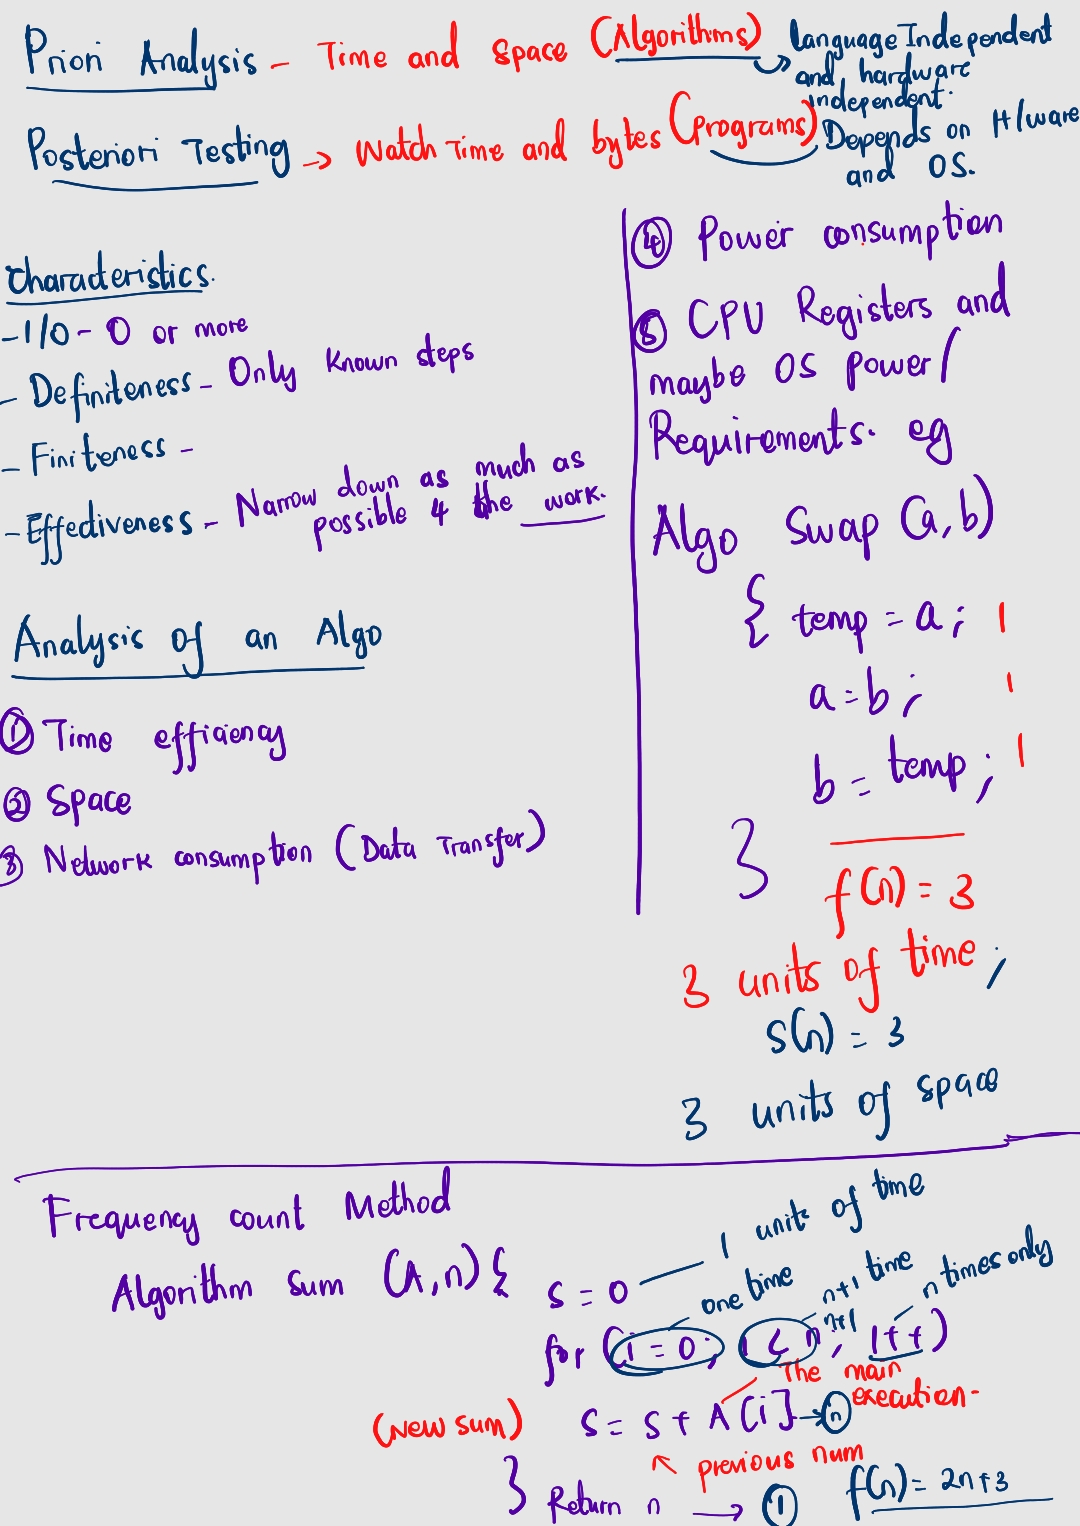 Priori Analysis - Time and Space (Algorithms) Language Independent
and hardware
independent.
Posteriori Testing → Watch Time and bytes (Programs) Depends on H/ware
and OS.
Characteristics.
- I/O - 0 or more
- Definiteness - Only Known steps
- Finiteness -
- Effectiveness - Narrow down as much as
possible 4 the work.
Analysis of an Algo
① Time efficiency
② Space
③ Network consumption (Data Transfer)
④ Power consumption
⑤ CPU Registers and
maybe OS power/
Requirements. eg
Algo Swap (a, b)
{ temp = a; 1
a = b; 1
b = temp; 1
}
f(n) = 3
3 units of time;
S(n) = 3
3 units of space
Frequency count Method
Algorithm sum (A, n) {
s = 0 1 unit of time
one time n+1 time n times only
for (i = 0; i < n; i++)
n+1
The main
execution-
(New sum) S = S + A[i] → ⓝ
previous num
}
Return n → ①
f(n) = 2n+3